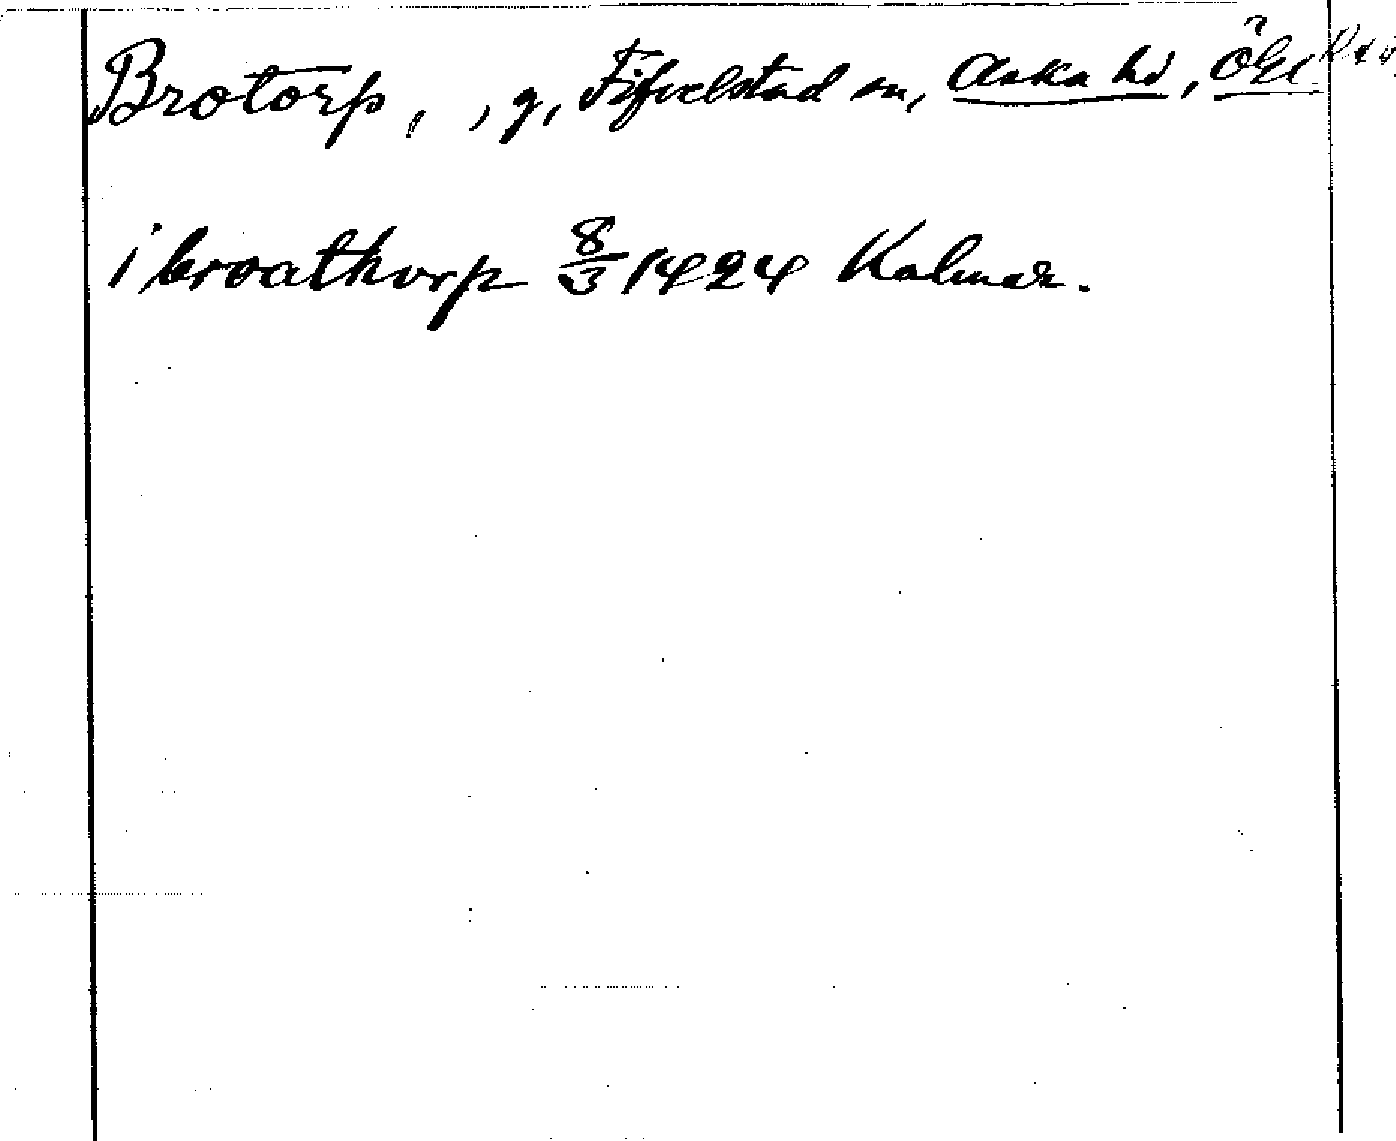 Brotorp, , g, Fifvelstad sn, Aska hd, Ögl
i broathorp 8/3 1424 Kalmar.